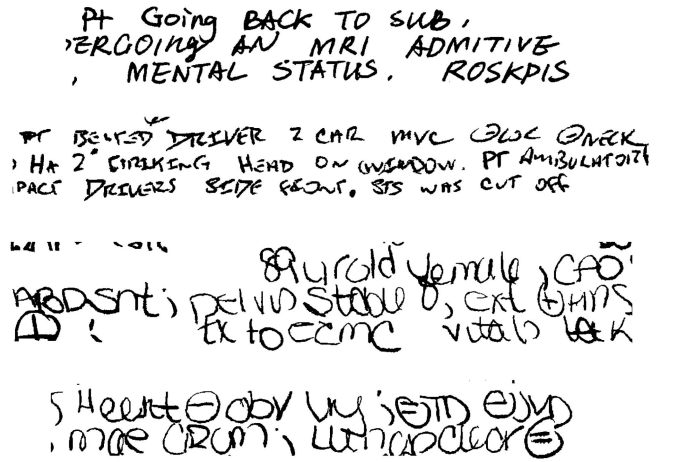 Pt Going BACK TO SUB.
ERGOING AN MRI ADMITIVE
, MENTAL STATUS. ROSKPIS
PT BELTED DRIVER 2 CAR MVC ⊖LOC ⊖NECK
HA 2° STRIKING HEAD ON WINDOW. PT AMBULATORY
PACT DRIVERS SIDE FRONT. STS WAS CUT OFF
89 yr old female, CAO
ABD Snt; pelvis Stable, ext ⊕ HMS
TX to ECMC vitals
; Heent ⊖ obv inj; ⊖TD ⊖JVD
, mae CRCM; Lungs clear ⊜